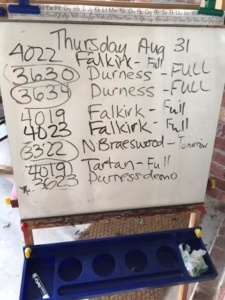 Thursday Aug 31
4022 Falkirk - Full
3630 Durness - FULL
3634 Durness - FULL
4019 Falkirk - Full
4023 Falkirk - Full
3322 N. Braeswood - Tomorrow
4019 Tartan - Full
3623 Durness demo